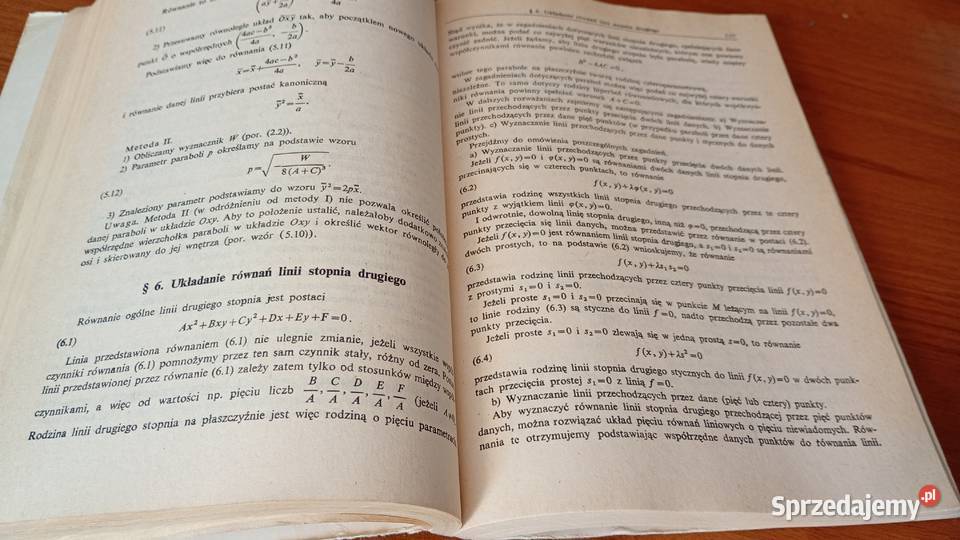 Równanie to
(5.11)
2) Przesuwamy równolegle układ Oxy tak, aby początkiem nowego układu
punkt O o współrzędnych (4ac−b²/4a, −b/2a).
Podstawiamy więc do równania (5.11)
x̄=x̄+4ac−b²/4a, ȳ=ȳ−b/2a
i równanie danej linii przybiera postać kanoniczną
ȳ²=x̄/a.
Metoda II.
1) Obliczamy wyznacznik W (por. (2.2)).
2) Parametr paraboli p określamy na podstawie wzoru
(5.12)
p=√(W/8(A+C)³).
3) Znaleziony parametr podstawiamy do wzoru ȳ²=2px̄.
Uwaga. Metoda II (w odróżnieniu od metody I) nie pozwala określić
danej paraboli w układzie Oxy. Aby to położenie ustalić, należałoby dodatkowo
współrzędne wierzchołka paraboli w układzie Oxy i określić wektor równoległy do
osi i skierowany do jej wnętrza (por. wzór (5.10)).
§ 6. Układanie równań linii stopnia drugiego
Równanie ogólne linii drugiego stopnia jest postaci
(6.1)
Ax²+Bxy+Cy²+Dx+Ey+F=0.
Linia przedstawiona równaniem (6.1) nie ulegnie zmianie, jeżeli wszystkie
czynniki równania (6.1) pomnożymy przez ten sam czynnik stały, różny od zera.
linii przedstawionej przez równanie (6.1) zależy zatem tylko od stosunków między
czynnikami, a więc od wartości np. pięciu liczb B/A, C/A, D/A, E/A, F/A (jeżeli
Rodzina linii drugiego stopnia na płaszczyźnie jest więc rodziną o pięciu parametrach
§ 6. Układanie równań linii stopnia drugiego
Stąd wynika, że w zagadnieniach dotyczących linii stopnia drugiego,
warunki, można podać co najwyżej pięć warunków niezależnych,
czynić zadość. Jeżeli żądamy, aby linia drugiego stopnia była parabolą,
współczynnikami równania paraboli zachodzi związek
B²−4AC=0,
wobec tego parabole na płaszczyźnie tworzą rodzinę czteroparametrową.
W zagadnieniach dotyczących paraboli można więc podać co najwyżej cztery warunki
niezależne. To samo dotyczy rodziny hiperbol równoosiowych, dla których współczyn-
niki równania powinny spełniać warunek A+C=0.
W dalszych rozważaniach zajmiemy się następującymi zagadnieniami: a) Wyznacza-
nie linii przechodzących przez punkty przecięcia dwóch linii danych. b) Wyznaczanie
linii przechodzących przez dane pięć punktów (w przypadku paraboli przez dane cztery
punkty). c) Wyznaczanie linii przechodzących przez dane punkty i stycznych do danych
prostych.
Przejdźmy do omówienia poszczególnych zagadnień.
a) Wyznaczanie linii przechodzących przez punkty przecięcia dwóch danych linii.
Jeżeli f(x, y)=0 i φ(x, y)=0 są równaniami dwóch danych linii stopnia drugiego,
przecinających się w czterech punktach, to równanie
(6.2)
f(x, y)+λφ(x, y)=0
przedstawia rodzinę wszystkich linii stopnia drugiego przechodzących przez te cztery
punkty z wyjątkiem linii φ(x, y)=0.
I odwrotnie, dowolną linię stopnia drugiego, inną niż φ=0, przechodzącą przez cztery
punkty przecięcia się linii danych, można przedstawić przez równanie w postaci (6.2).
Jeżeli f(x, y)=0 jest równaniem linii stopnia drugiego, a s₁=0 i s₂=0 są równaniami
dwóch prostych, to na podstawie (6.2) wnioskujemy, że równanie
(6.3)
f(x, y)+λs₁s₂=0
przedstawia rodzinę linii przechodzących przez cztery punkty przecięcia linii f(x, y)=0
z prostymi s₁=0 i s₂=0.
Jeżeli proste s₁=0 i s₂=0 przecinają się w punkcie M leżącym na linii f(x, y)=0,
to linie rodziny (6.3) są styczne do linii f=0, nadto przechodzą przez pozostałe dwa
punkty przecięcia.
Jeżeli proste s₁=0 i s₂=0 zlewają się w jedną prostą s=0, to równanie
(6.4)
f(x, y)+λs²=0
przedstawia rodzinę linii stopnia drugiego stycznych do linii f(x, y)=0 w dwóch punk-
tach przecięcia prostej s₁=0 z linią f=0.
b) Wyznaczanie linii przechodzących przez dane (pięć lub cztery) punkty.
Aby wyznaczyć równanie linii stopnia drugiego przechodzącej przez pięć punktów
danych, można rozwiązać układ pięciu równań liniowych o pięciu niewiadomych. Rów-
nania te otrzymujemy podstawiając współrzędne danych punktów do równania linii.
Sprzedajemy.pl